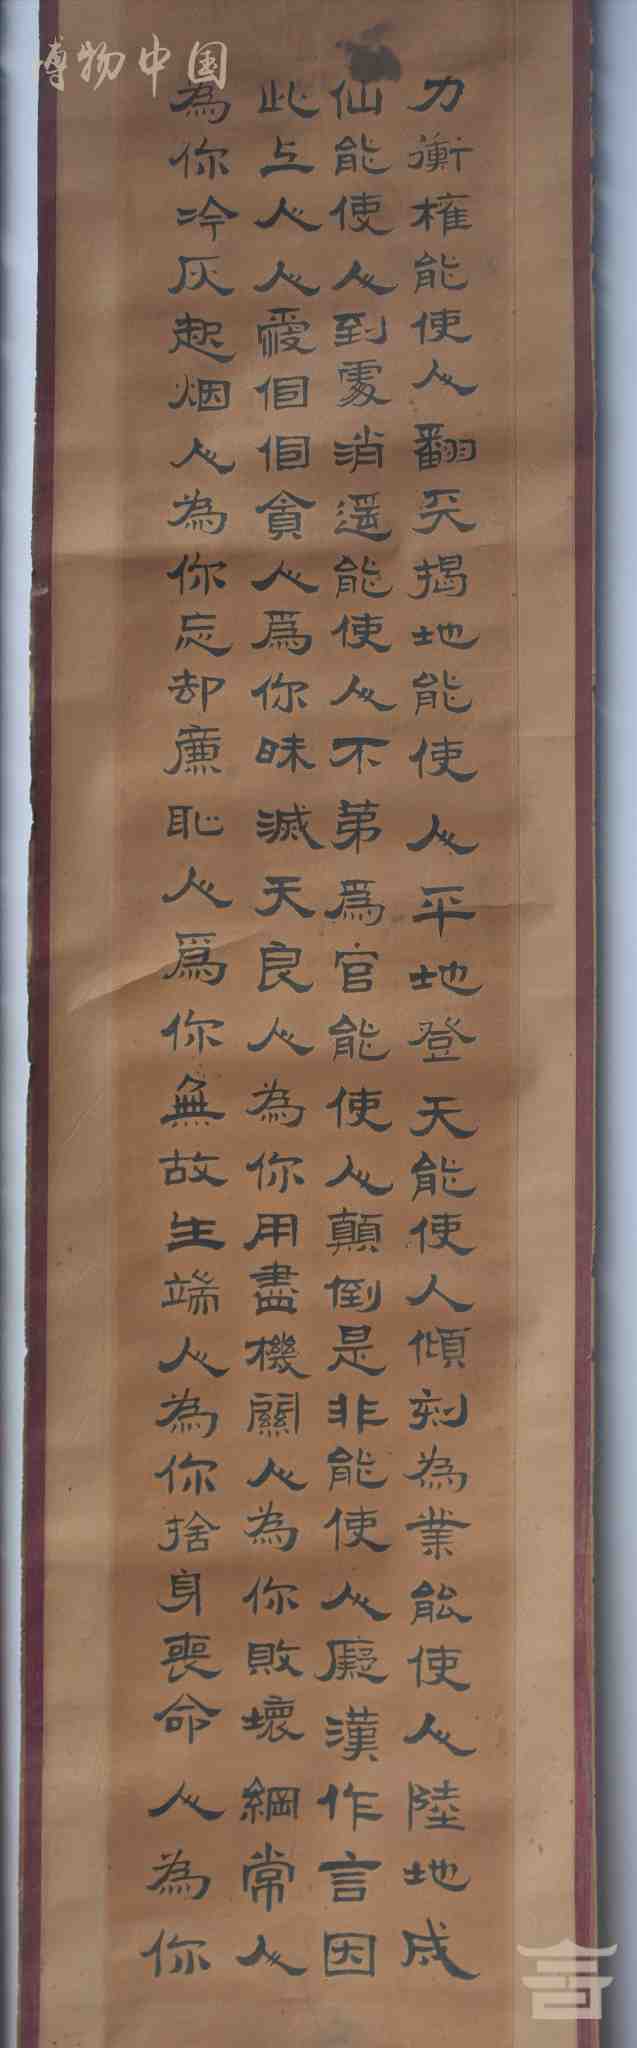 博物中国
力衡權能使人翻天揭地能使人平地登天能使人傾刻為業能使人陸地成
仙能使人到處消遥能使人不第爲官能使人顛倒是非能使人癡漢作言因
此上人人愛個個貪人爲你昧滅天良人為你用盡機關人為你敗壞綱常人
為你冷灰起烟人為你忘却廉恥人爲你無故生端人為你捨身喪命人為你